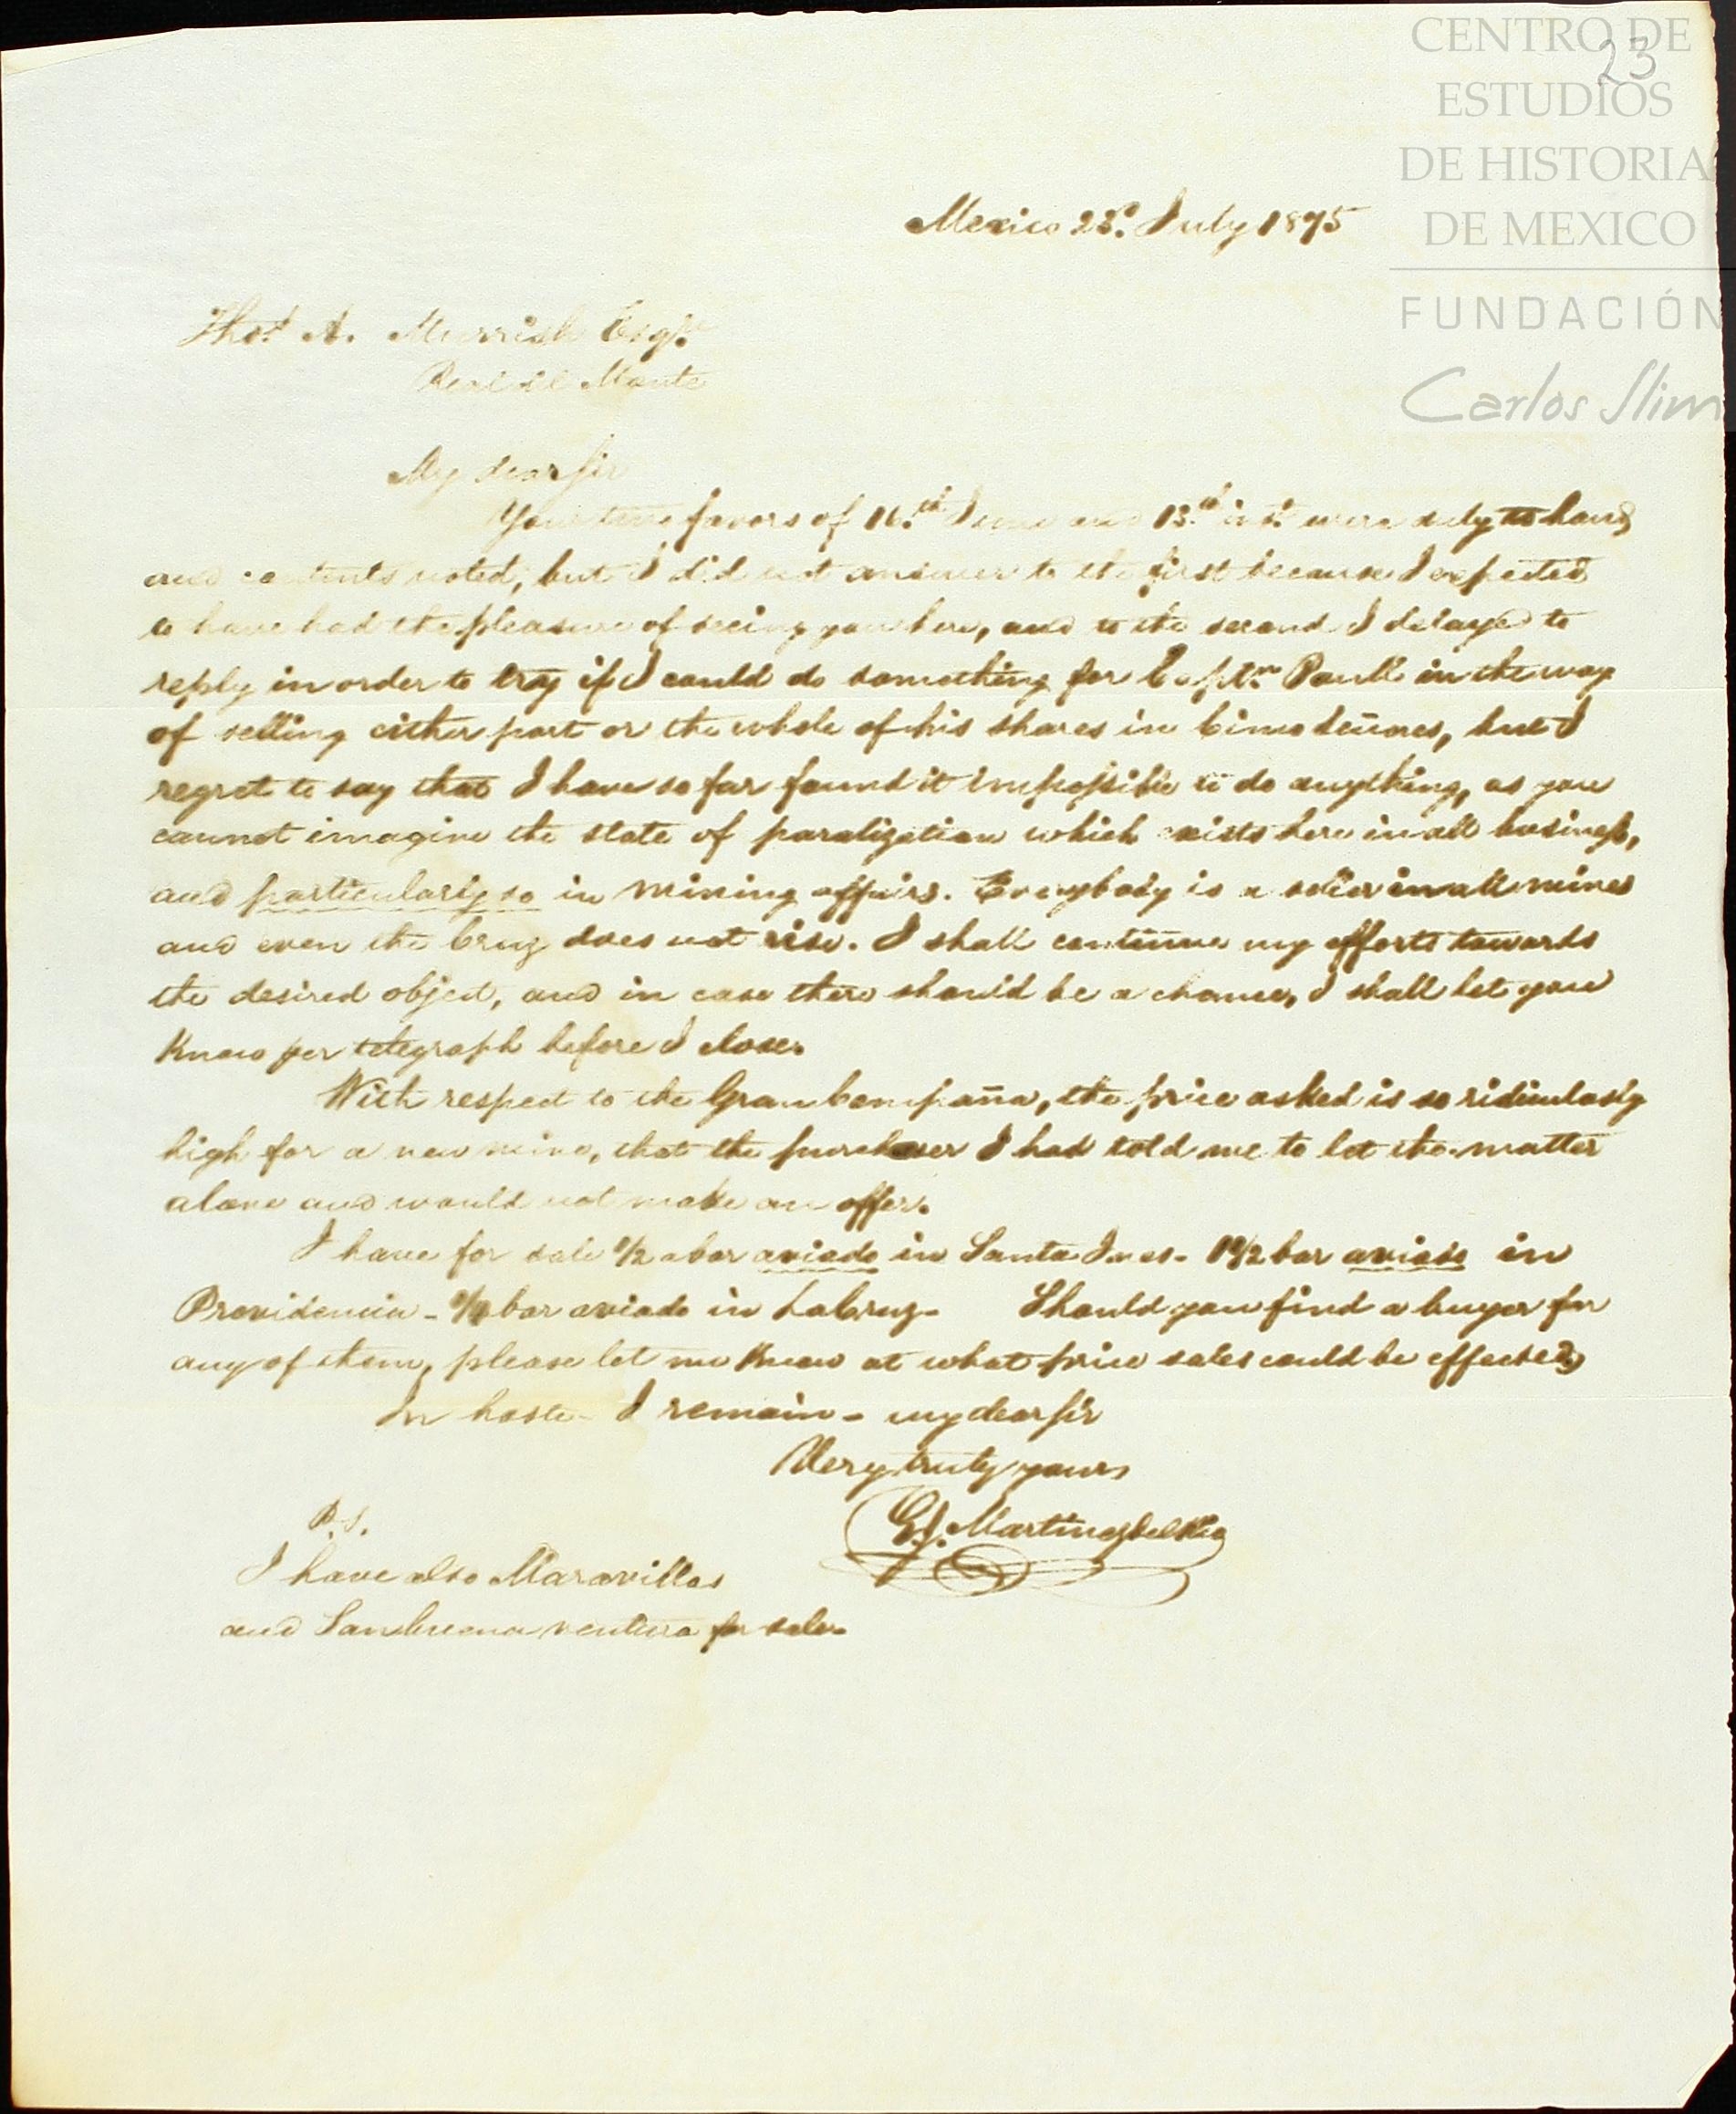 CENTRO DE
ESTUDIOS
DE HISTORIA
DE MEXICO
FUNDACIÓN
Carlos Slim
23
Mexico 23.d July 1875
Thos. A. Murrish Esqre.
Real del Monte
My dear sir
Your two favors of 16.th June and 13.th inst. were duly to hand
and contents noted, but I did not answer to the first because I expected
to have had the pleasure of seeing you here, and to the second I delayed to
reply in order to try if I could do something for Captn. Paull in the way
of selling either part or the whole of his shares in but I
regret to say that I have so far found it impossible to do anything, as you
cannot imagine the state of paralization which exists here in all business,
and particularly so in mining affairs. Everybody is a seller in all mines
and even the Cruz does not rise. I shall continue my efforts towards
the desired object, and in case there should be a chance, I shall let you
know per telegraph before I close.
With respect to the Gran Compañia, the price asked is so ridiculosly
high for a new mine, that the purchaser I had told me to let the matter
alone and would not make an offer.
I have for sale 1/2 a bar aviada in Santa Ines - 1 1/2 bar aviada in
Providencia - bar aviada in La Cruz - Should you find a buyer for
any of them, please let me know at what price sales could be effected,
In haste - I remain - my dear sir
Very truly yours
G. J. Martinez del Rio
P.S.
I have also Maravillas
and San Buena ventura for sale.